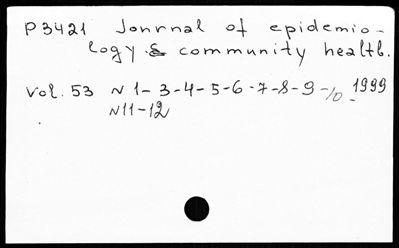 P3421 Jonrnal of epidemio-
logy & community health.
Vol. 53 N 1-3-4-5-6-7-8-9-10 1999
N11-12